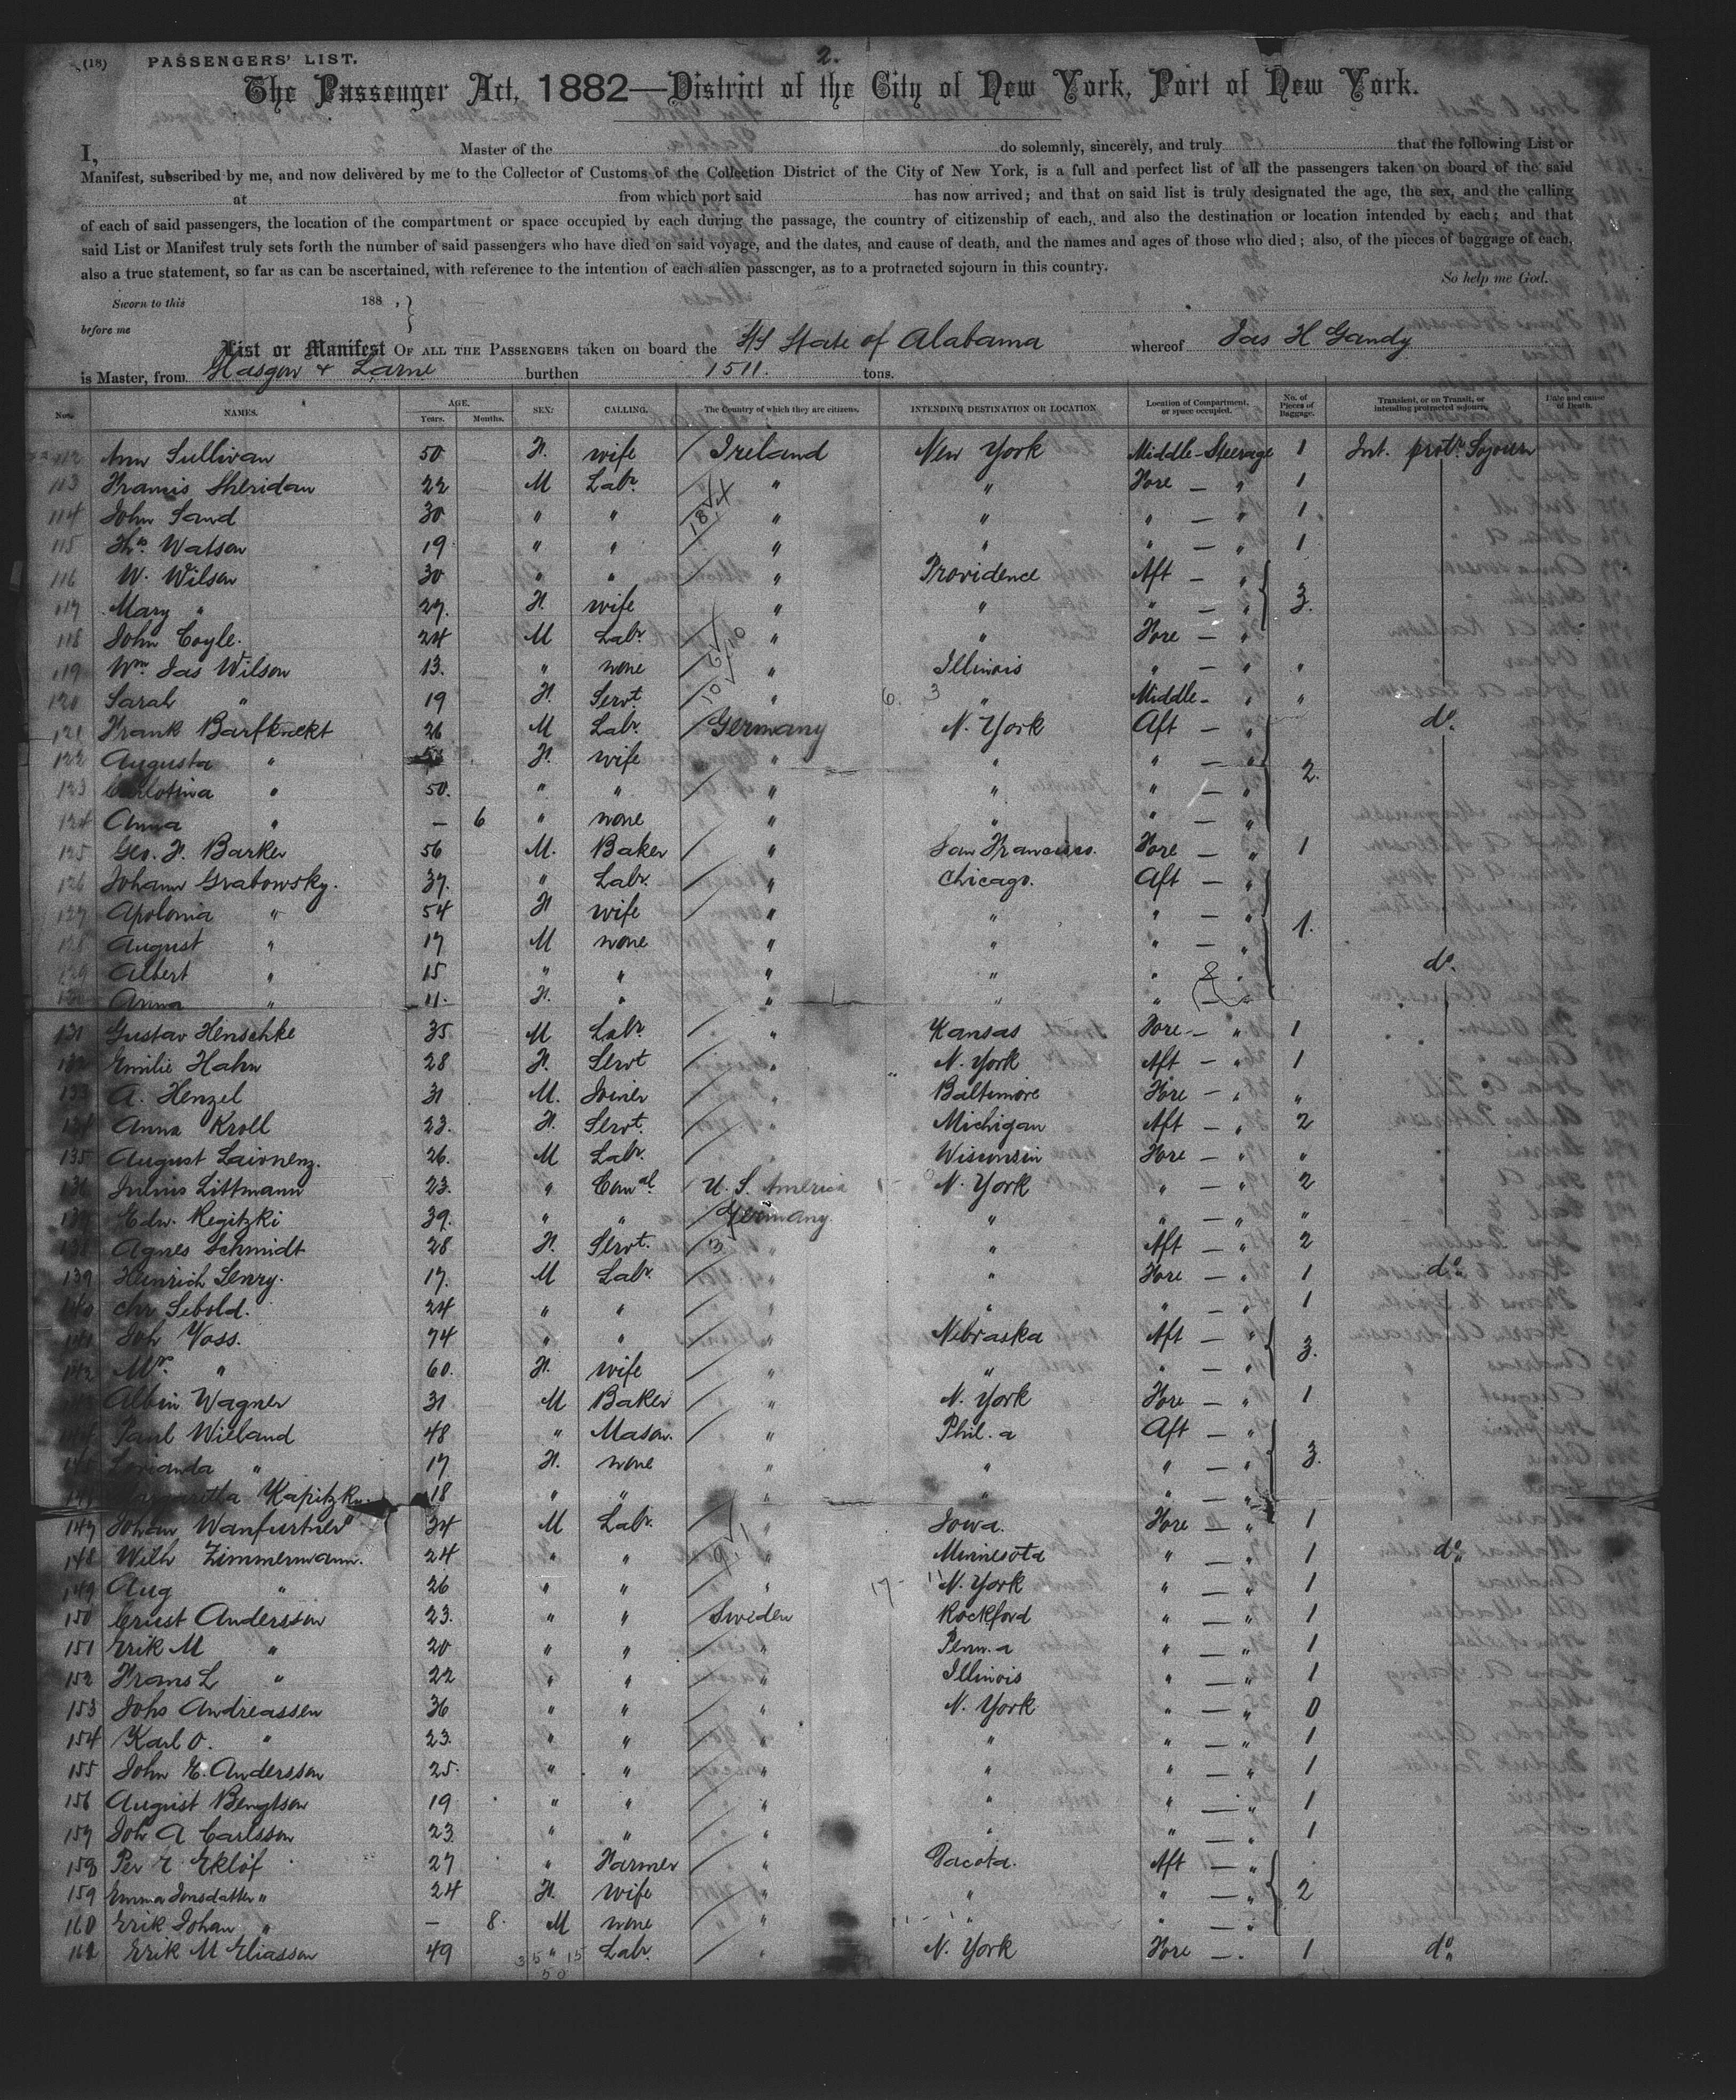 2.
(18) PASSENGERS' LIST.
The Passenger Act, 1882—District of the City of New York, Port of New York.
I, Master of the do solemnly, sincerely, and truly that the following List or
Manifest, subscribed by me, and now delivered by me to the Collector of Customs of the Collection District of the City of New York, is a full and perfect list of all the passengers taken on board of the said
at from which port said has now arrived; and that on said list is truly designated the age, the sex, and the calling
of each of said passengers, the location of the compartment or space occupied by each during the passage, the country of citizenship of each, and also the destination or location intended by each; and that
said List or Manifest truly sets forth the number of said passengers who have died on said voyage, and the dates, and cause of death, and the names and ages of those who died; also, of the pieces of baggage of each,
also a true statement, so far as can be ascertained, with reference to the intention of each alien passenger, as to a protracted sojourn in this country.
So help me God.
Sworn to this 188 ,
before me
List or Manifest OF ALL THE PASSENGERS taken on board the SS State of Alabama whereof Jas H Gandy
is Master, from Glasgow & Larne burthen 1511. tons.
Nos. NAMES. AGE. Years. Months. SEX. CALLING. The Country of which they are citizens. INTENDING DESTINATION OR LOCATION Location of Compartment, or space occupied. No. of Pieces of Baggage. Transient, or on Transit, or intending protracted sojourn. Date and cause of Death.
112 Ann Sullivan 50 F. wife Ireland New York Middle-Steerage 1 Int. protr. Sojourn
113 Francis Sheridan 22 M Labr. " " Fore — " 1
114 John Sand 30 " " " " " — " 1
115 Ths. Watson 19 " " " " " — " 1
116 W. Wilson 30 " " " Providence Aft — "
117 Mary " 27. F. wife " " " — " 3.
118 John Coyle. 24 M Labr. " " Fore — "
119 Wm Jas Wilson 13. " none " Illinois " — " "
120 Sarah " 19 F. Servt. " " Middle- " "
121 Frank Barfknekt 26 M Labr. Germany N. York Aft — " do.
122 Augusta " F. wife " " " — " 2.
123 Carlotina " 50. " " " " " — "
124 Anna " — 6 " none " " " — "
125 Geo. F. Barker 56 M. Baker " San Francisco. Fore — " 1
126 Johann Grabowsky. 37. " Labr. " Chicago. Aft — "
127 Apolonia " 54 F wife " " " — " 1.
128 August " 17 M none " " " — "
129 Albert " 15 " " " " " " do.
130 Anna " 11. F. " " " " — "
131 Gustav Henschke 35 M Labr. " Kansas Fore — " 1
132 Emilie Hahn 28 F. Servt " N. York Aft — " 1
133 A. Henzel 31 M. Joiner " Baltimore Fore — " "
134 Anna Kroll 23. F. Servt. " Michigan Aft — " 2
135 August 26. M Labr. " Wisconsin Fore — " "
136 Julius Littmann 23. " U. S. America N. York " — " 2
137 Edw. Regitzki 39. " " Germany " " — " "
138 Agnes Schmidt 28 F. Servt. " " Aft — " 2
139 Heinrich 17. M Labr. " " Fore — " 1 do.
140 Chr Sebold. 24 " " " " " — " 1
141 Joh Voss. 74 " " " Nebraska Aft — "
142 Mrs. " 60. F. wife " " " — " 3.
Albin Wagner 31 M Baker " N. York Fore — " 1
144 Paul Wieland 48 " Mason. " Phil.a Aft — "
145 " 17 F. none " " " — " 3.
Kapitzki 18 " " " " " — "
147 Johan Wanfurtner 34 M Labr. " Iowa. Fore — " 1
148 Wilh Zimmermann. 24 " " " Minnesota " — " 1 do.
149 Aug " 26 " " " N. York " — " 1
150 Ernst Andersson 23. " " Sweden Rockford " — " 1
151 Erik M " 20 " " " Penn.a " — " 1
152 Frans L " 22 " " " Illinois " — " 1
153 Johs Andreassen 36 " " " N. York " — " 0
154 Karl O. " 23. " " " " " — " 1
155 John E. Andersson 25. " " " " " — " 1
156 August Bengtson 19 " " " " " — " 1
157 Joh A Carlsson 23 " " " " " — " 1
158 Per E Eklöf 27 " Farmer " Dacota. Aft — "
159 Emma Jonsdatter " 24 F. wife " " " — " 2
160 Erik Johan " — 8. M none " " " — "
161 Erik M Eliasson 49 " Labr. " N. York Fore — . 1 do.